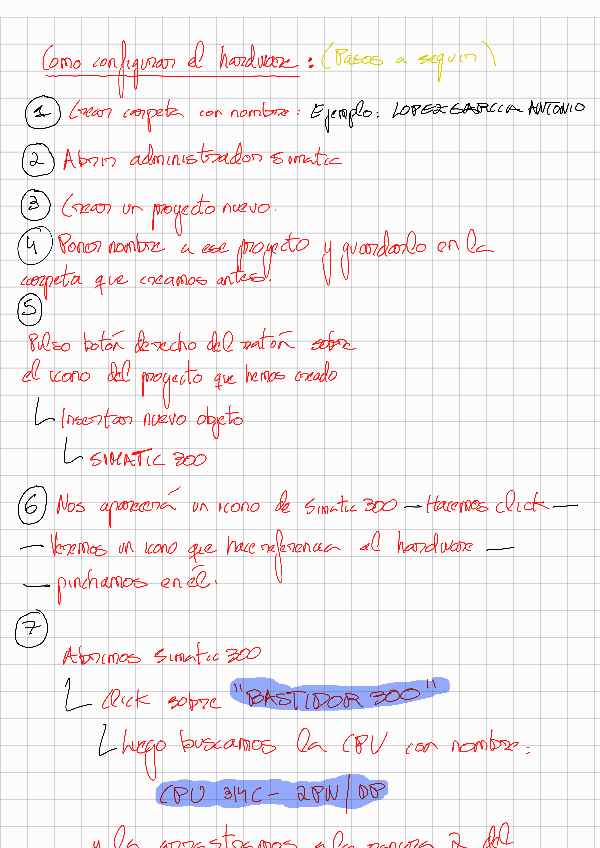 Como configurar el hardware: (Pasos a seguir)
1 Crear carpeta con nombre: Ejemplo: LOPEZ GARCIA ANTONIO
2 Abrir administrador Simatic
3 Crear un proyecto nuevo.
4 Poner nombre a ese proyecto y guardarlo en la
carpeta que creamos antes.
5
Pulso botón derecho del ratón sobre
el icono del proyecto que hemos creado
Insertar nuevo objeto
SIMATIC 300
6 Nos aparecerá un icono de Simatic 300 — Hacemos click —
— Veremos un icono que hace referencia al hardware —
— pinchamos en él.
7
Abrimos Simatic 300
Click sobre "BASTIDOR 300"
Luego buscamos la CPU con nombre:
CPU 314C - 2PN/DP
y la arrastramos a la ranura 2 del